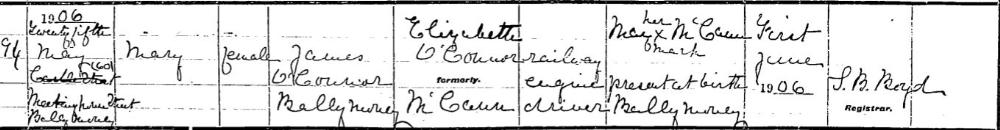 1906
Twenty fifth
May
(60)
Castle Street
Meeting house Street
Ballymoney
Mary
female
James
O'Connor
Ballymoney
Elizabeth
O'Connor
formerly.
McCann
railway
engine
driver
her
May x McCann
mark
present at birth
Ballymoney
First
June
1906
S. B. Boyd
Registrar.